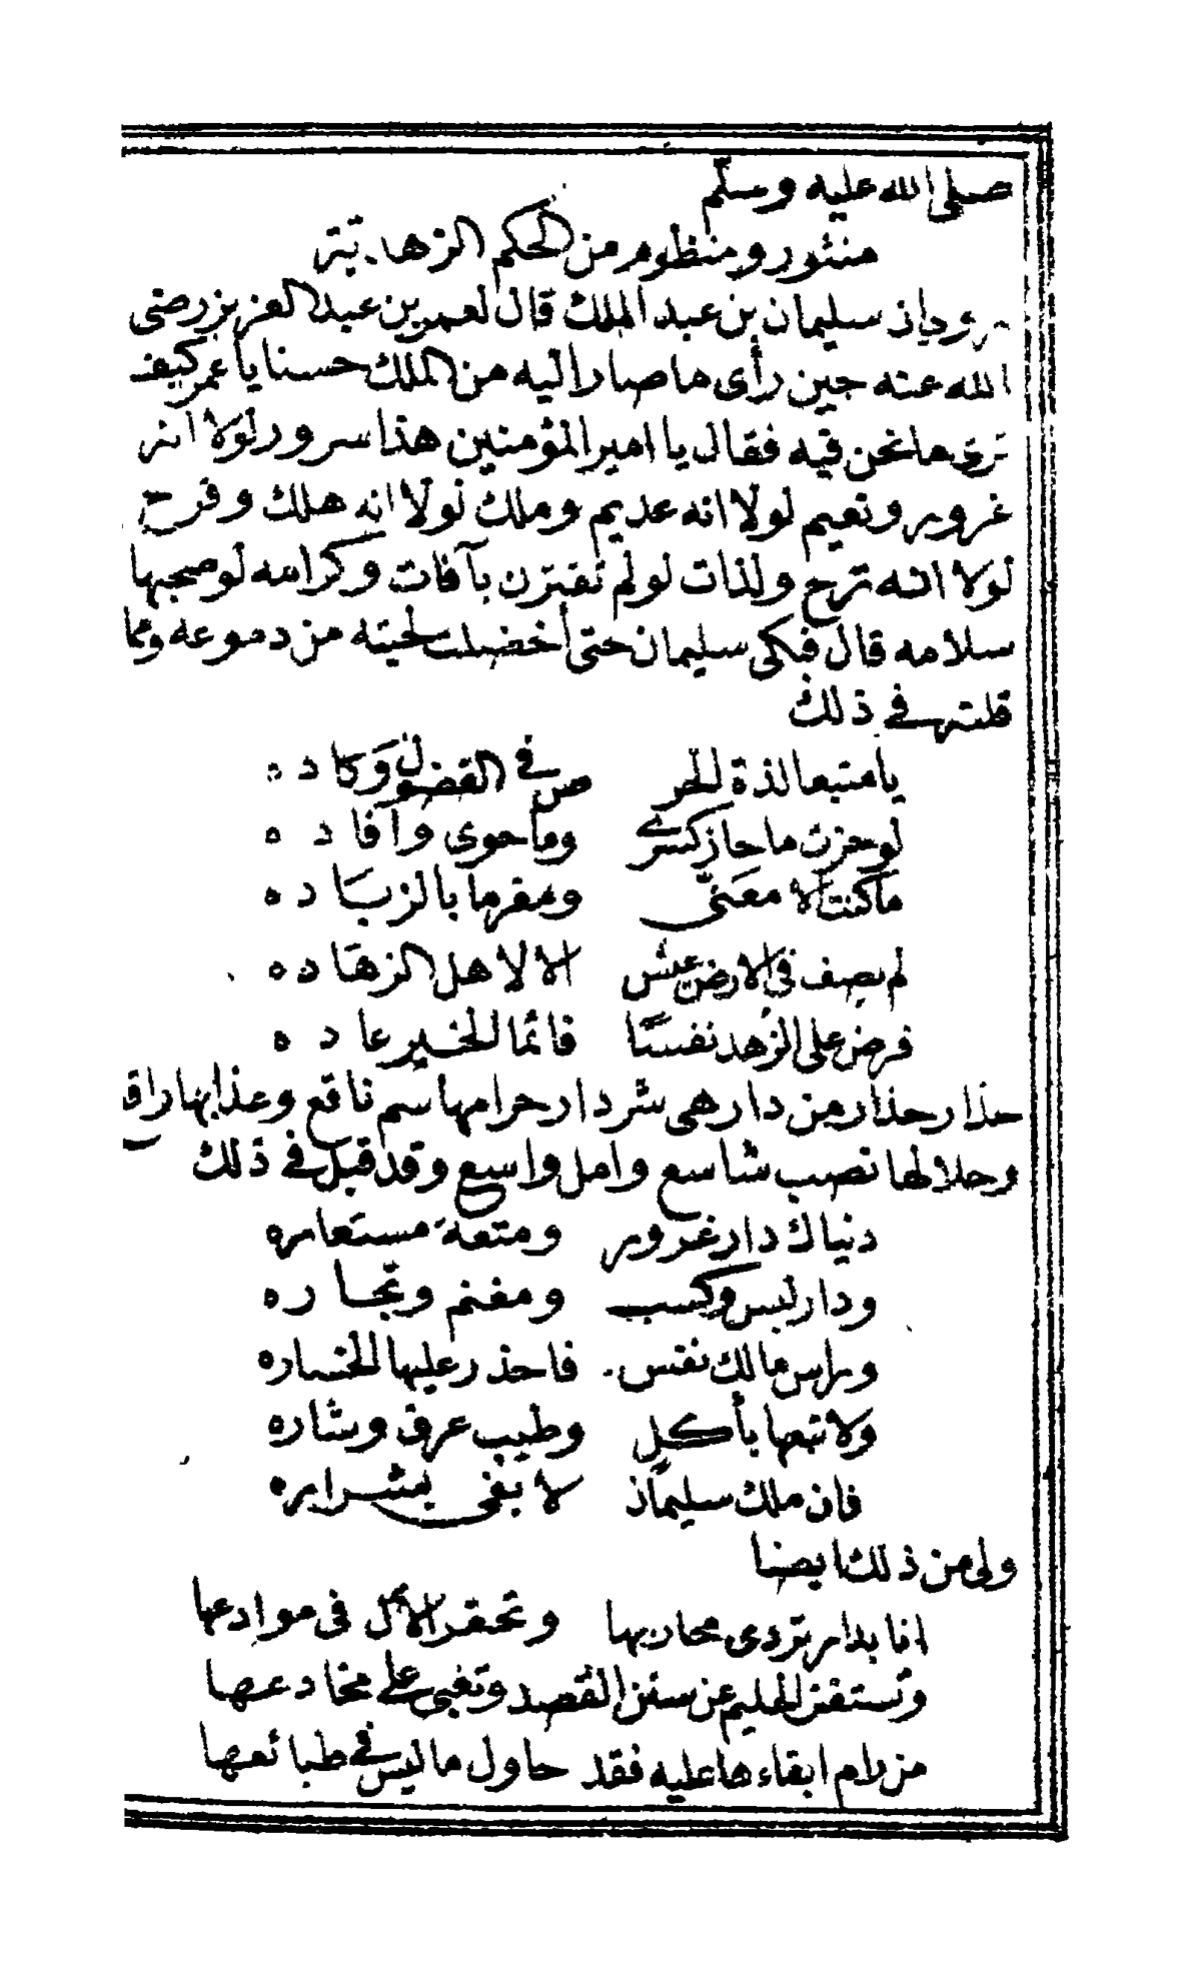 صلى الله عليه وسلم
منثور ومنظوم من الحكم الزهادية
روي ان سليمان بن عبد الملك قال لعمر بن عبد العزيز رضى
الله عنه حين رأى ما صار اليه من الملك حسنا يا عمر كيف
ترى ما نحن فيه فقال يا امير المؤمنين هذا سرور لولا انه
غرور ونعيم لولا انه عديم وملك لولا انه هلك وفرح
لولا انه ترح ولذات لو لم تقترن بآفات وكرامه لو صحبها
سلامه قال فبكى سليمان حتى أخضلت لحيته من دموعه ومما
قلته في ذلك
يا متبعا لذة الحر ص في الفضول وكاده
لو حزت ما حاز كسرى وما حوى وآفاده
ما كنت الا معنى ومغرما بالزياده
لم يصف في الارض عيش الا لاهل الزهاده
فرض على الزهد نفسا فانما الخير عاده
حذار حذار من دار هى شر دار حرامها سم ناقع وعذابها راق
وحلالها نصب شاسع وامل واسع وقد قيل في ذلك
دنياك دار غرور ومتعة مستعاره
ودار لبس وكسب ومغنم وتجاره
وراس مالك نفس فاحذر عليها الخساره
ولا تبعها بأكل وطيب عرف وشاره
فان ملك سليمان لا يفى بشراره
ولى من ذلك ايضا
انا بدار تردى محاربها وتحقر الامن فى موادعها
وتستفز الحليم عن سنن القصد وتغبى على مخادعها
من رام ابقاءها عليه فقد حاول ما ليس في طبائعها